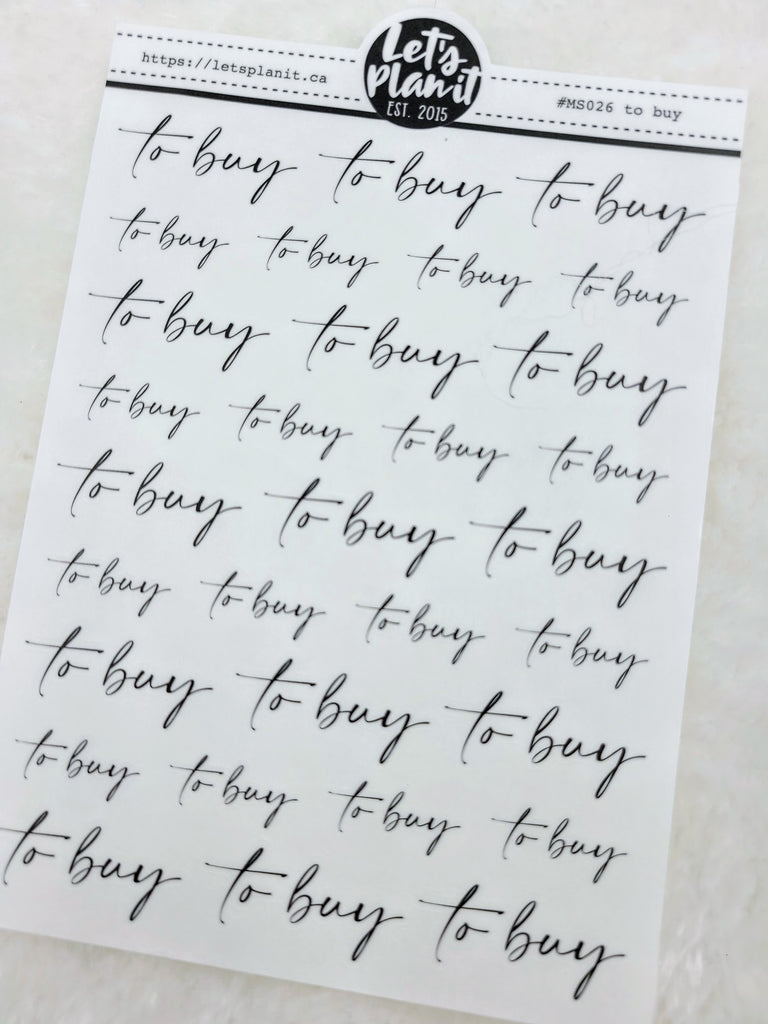 https://letsplanit.ca
Let's
planit
EST. 2015
#MS026 to buy
to buy to buy to buy
to buy to buy to buy to buy
to buy to buy to buy
to buy to buy to buy to buy
to buy to buy to buy
to buy to buy to buy to buy
to buy to buy to buy
to buy to buy to buy to buy
to buy to buy to buy